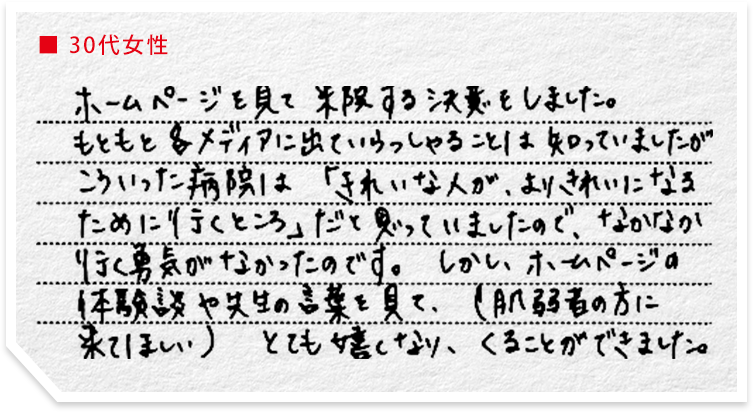 ■ 30代女性
ホームページを見て来院する決意をしました。
もともと各メディアに出ていらっしゃることは知っていましたが
こういった病院は「きれいな人が、よりきれいになる
ために行くところ」だと思っていましたので、なかなか
行く勇気がなかったのです。しかし、ホームページの
体験談や先生の言葉を見て、(肌弱者の方に
来てほしい) とても嬉しくなり、くることができました。